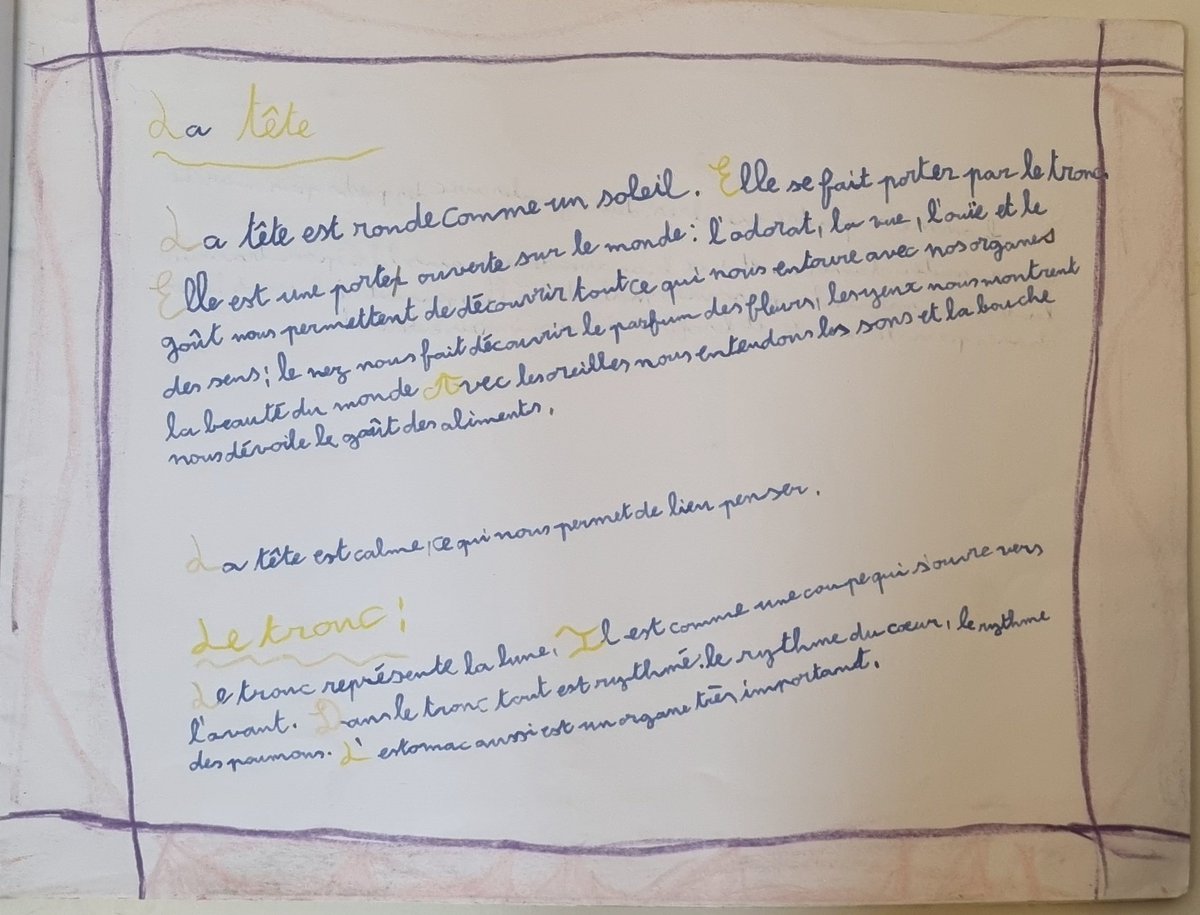 La tête
La tête est ronde comme un soleil. Elle se fait porter par le tronc.
Elle est une porte ouverte sur le monde : l'adorat, la vue, l'ouïe et le
goût nous permettent de découvrir tout ce qui nous entoure avec nos organes
des sens ; le nez nous fait découvrir le parfum des fleurs, les yeux nous montrent
la beauté du monde Avec les oreilles nous entendons les sons et la bouche
nous dévoile le goût des aliments.
La tête est calme, ce qui nous permet de bien penser.
Le tronc :
Le tronc représente la lune, Il est comme une coupe qui s'ouvre vers
l'avant. Dans le tronc tout est rythmé : le rythme du cœur, le rythme
des poumons. L'estomac aussi est un organe très important.